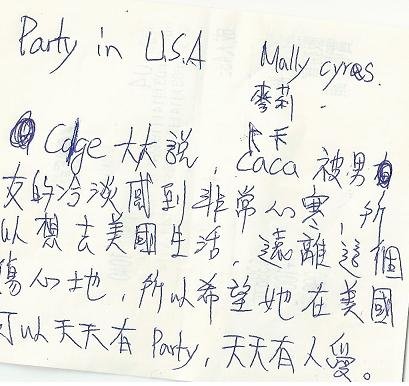 Party in U.S.A Mally cyres.
麥莉.
卡卡
Cdge 大大說, Caca 被男
友的冷淡感到非常心寒,所
以想去美國生活,遠離這個
傷心地,所以希望她在美國
可以天天有 Party,天天有人愛。